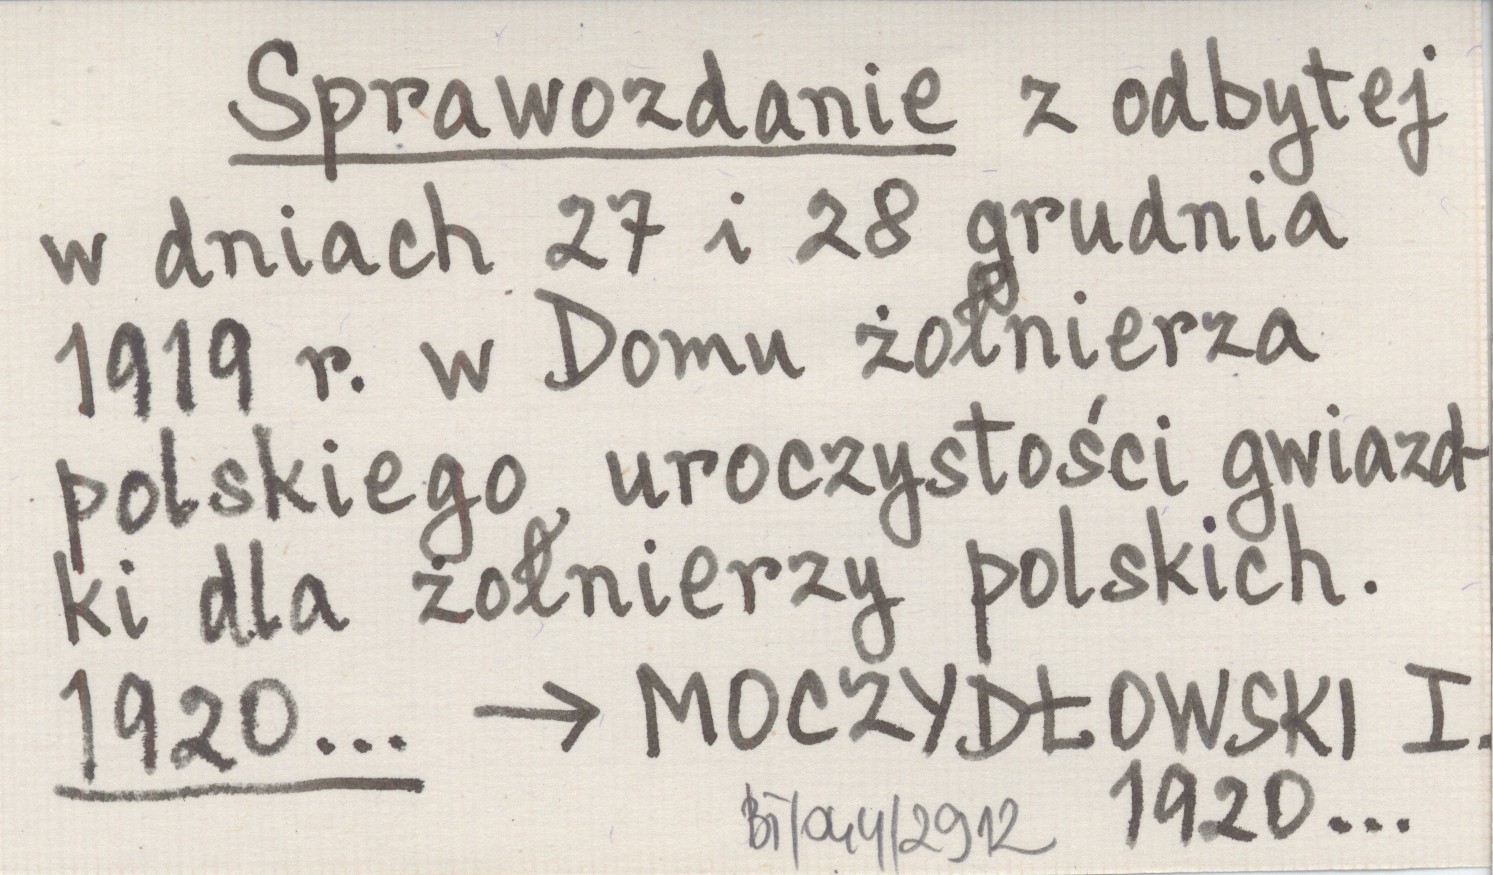 Sprawozdanie z odbytej
w dniach 27 i 28 grudnia
1919 r. w Domu żołnierza
polskiego uroczystości gwiazd-
ki dla żołnierzy polskich.
1920... → MOCZYDŁOWSKI I.
1920...